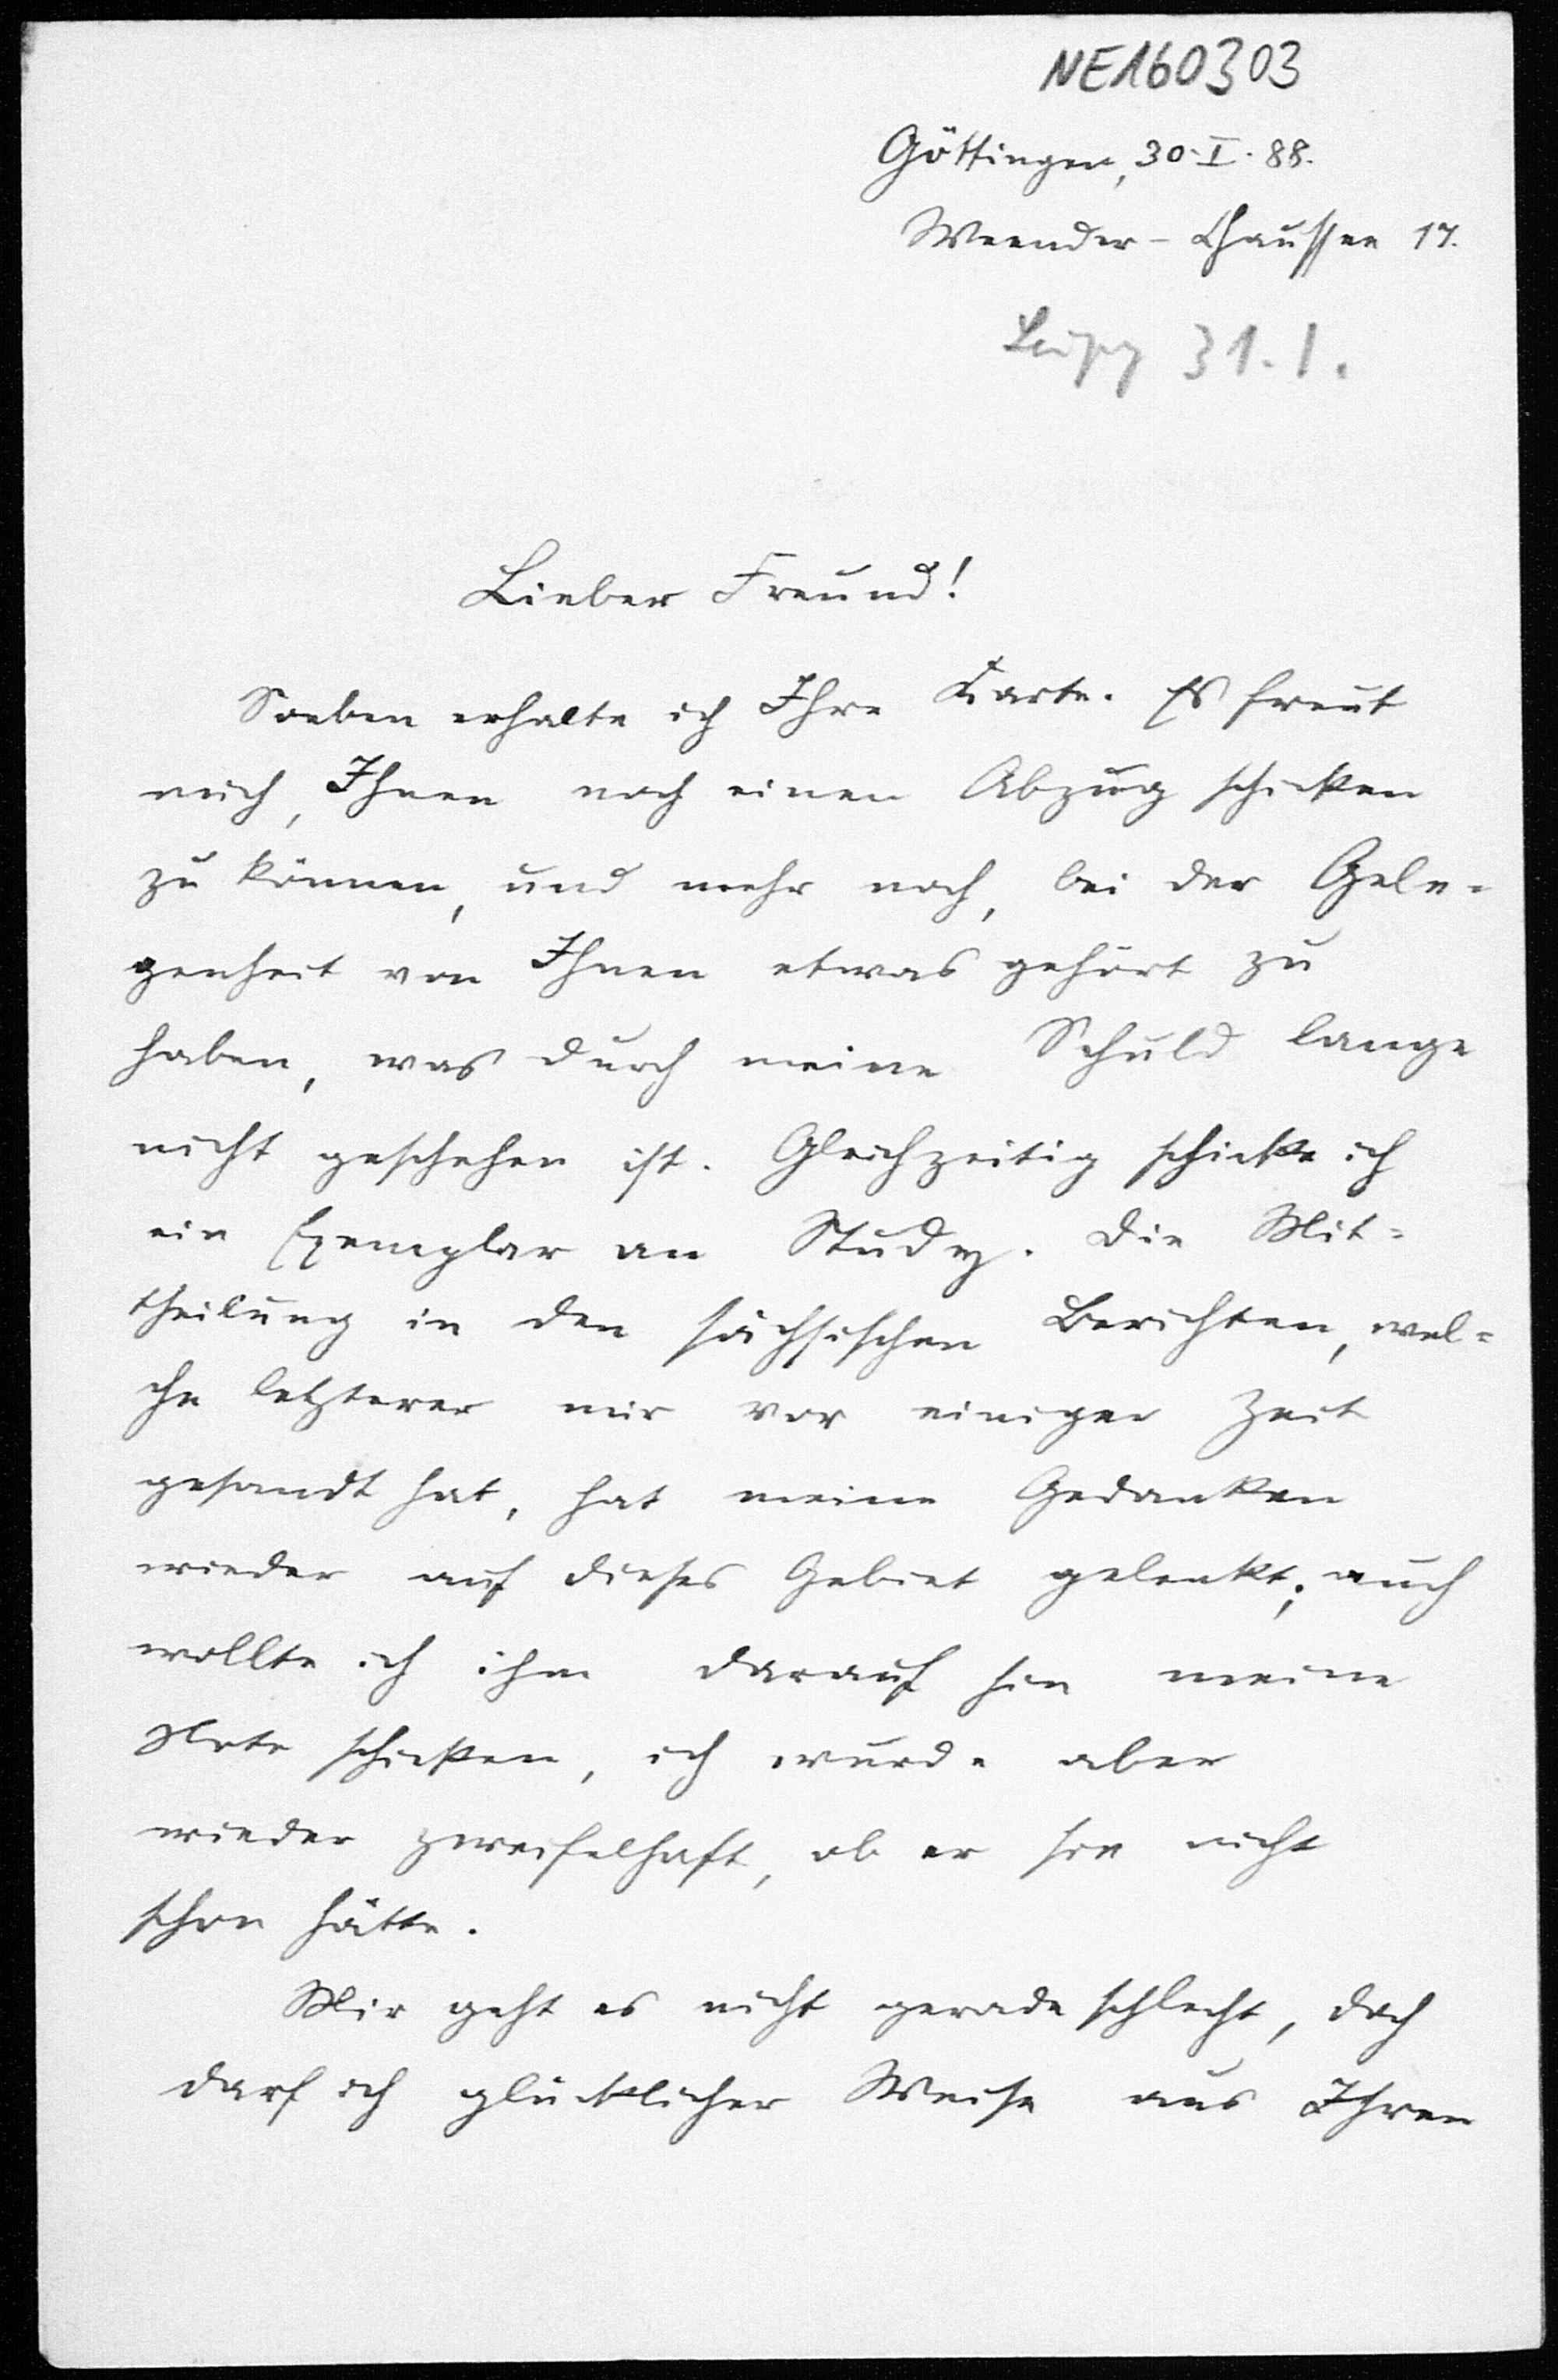 NE160303
Göttingen, 30. I. 88.
Weender-Chaussee 17.
Leipzg 31. I.
Lieber Freund!
Soeben erhalte ich Ihre Karte. Es freut
mich, Ihnen noch einen Abzug schicken
zu können, und mehr noch, bei der Gele-
genheit von Ihnen etwas gehört zu
haben, was durch meine Schuld lange
nicht geschehen ist. Gleichzeitig schicke ich
ein Exemplar an Study. Die Mit-
theilung in den sächsischen Berichten, wel-
che letzterer mir vor einiger Zeit
gesandt hat, hat meine Gedanken
wieder auf dieses Gebiet gelenkt; auch
wollte ich ihm darauf hin meine
Note schicken, ich wurde aber
wieder zweifelhaft, ob er sie nicht
schon hätte.
Mir geht es nicht gerade schlecht, doch
darf ich glücklicher Weise aus Ihren